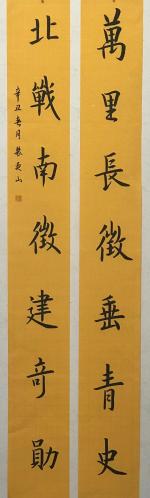 萬里長徵垂青史
北戰南徵建奇勛
辛丑年月